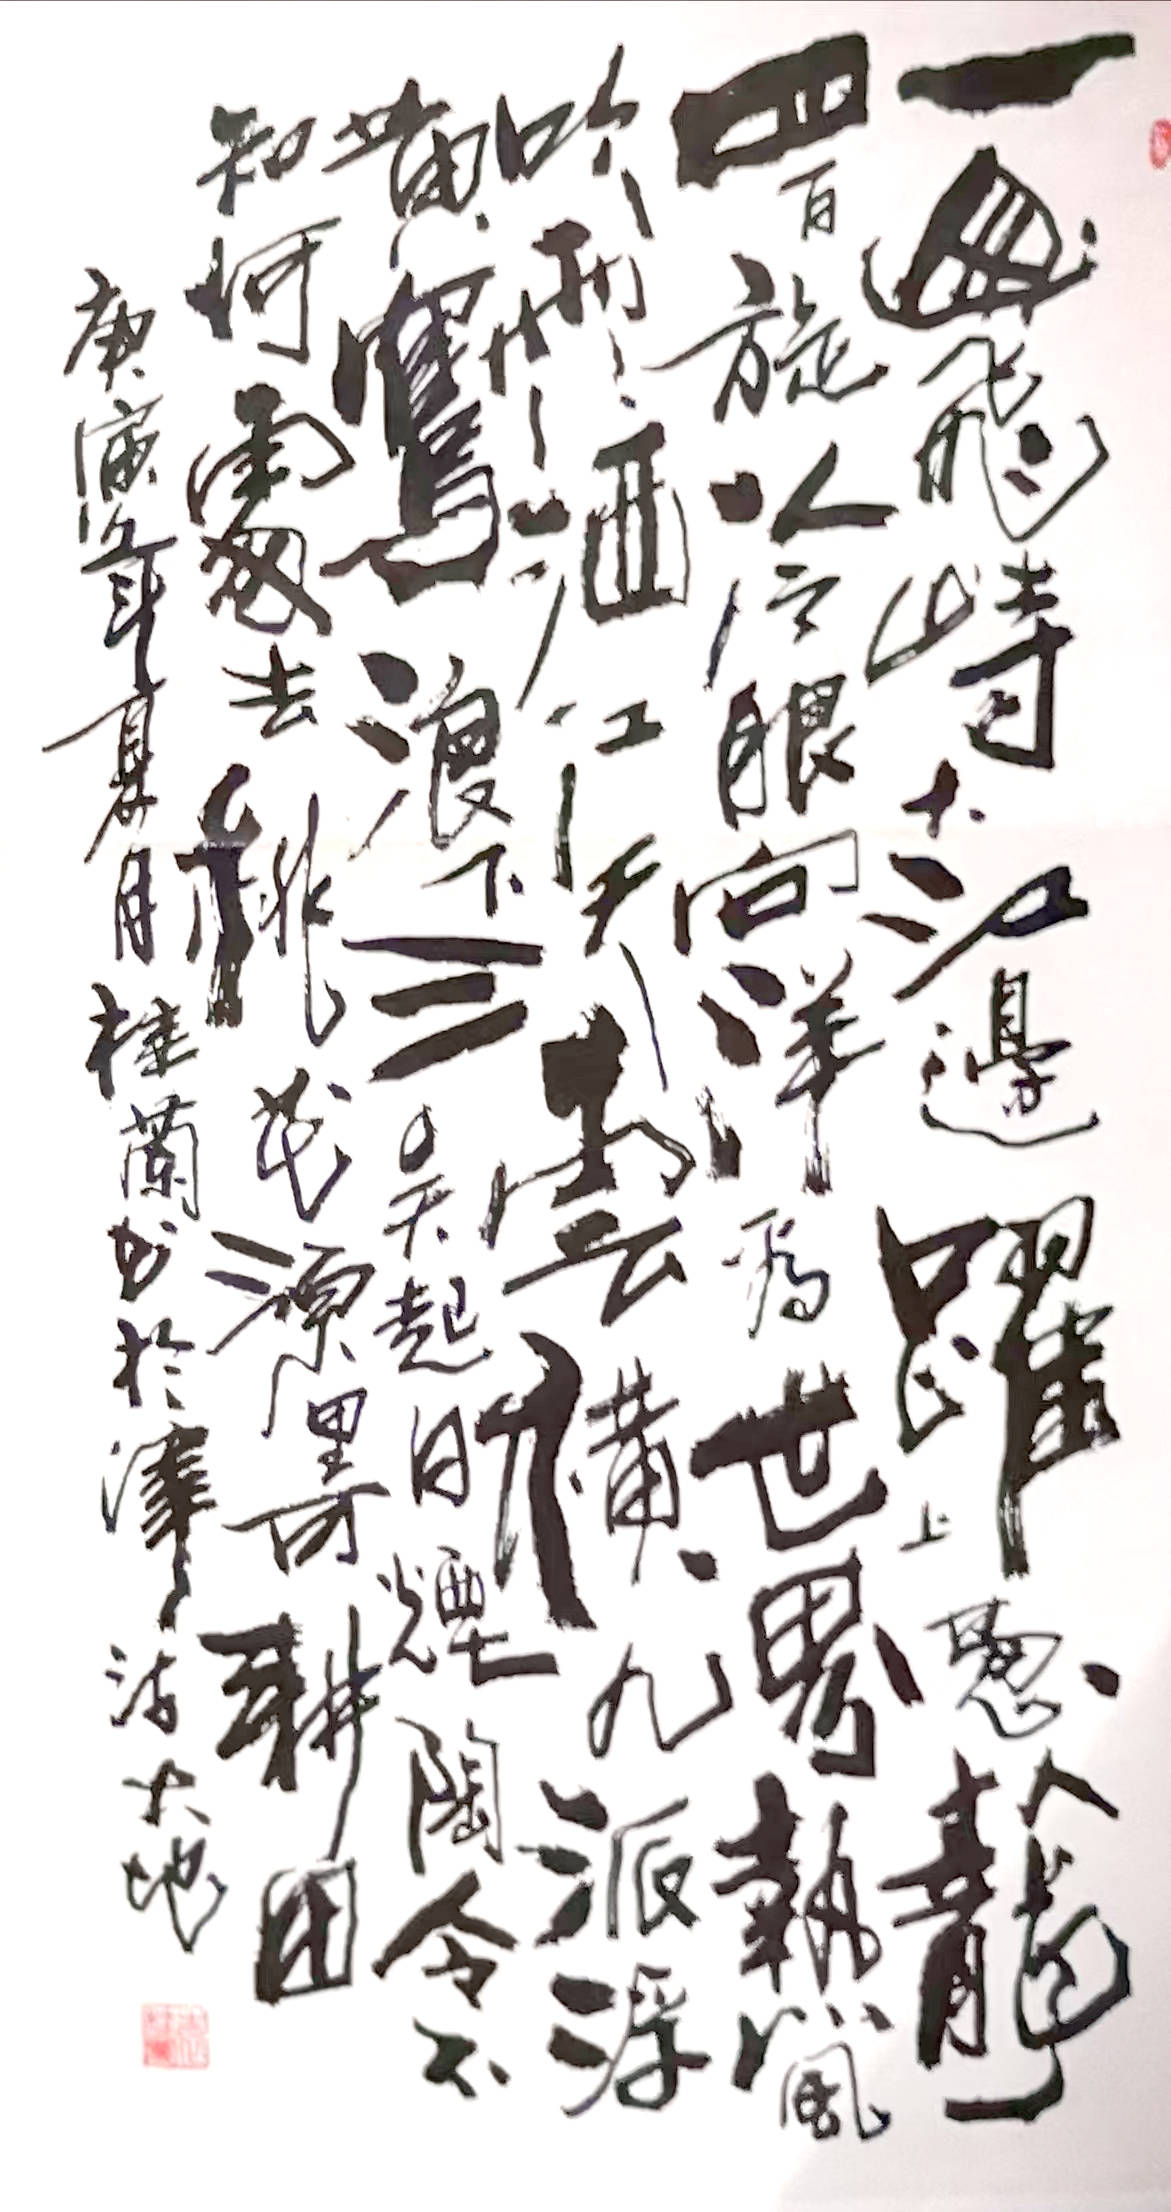 一山飛峙大江邊躍上蔥龍
四百旋冷眼向洋看世界熱風
吹雨洒江天雲橫九派浮
黃鶴浪下三吳起白煙陶令不
知何處去桃花源里可耕田
庚寅年夏月桂蘭書於津沽大地